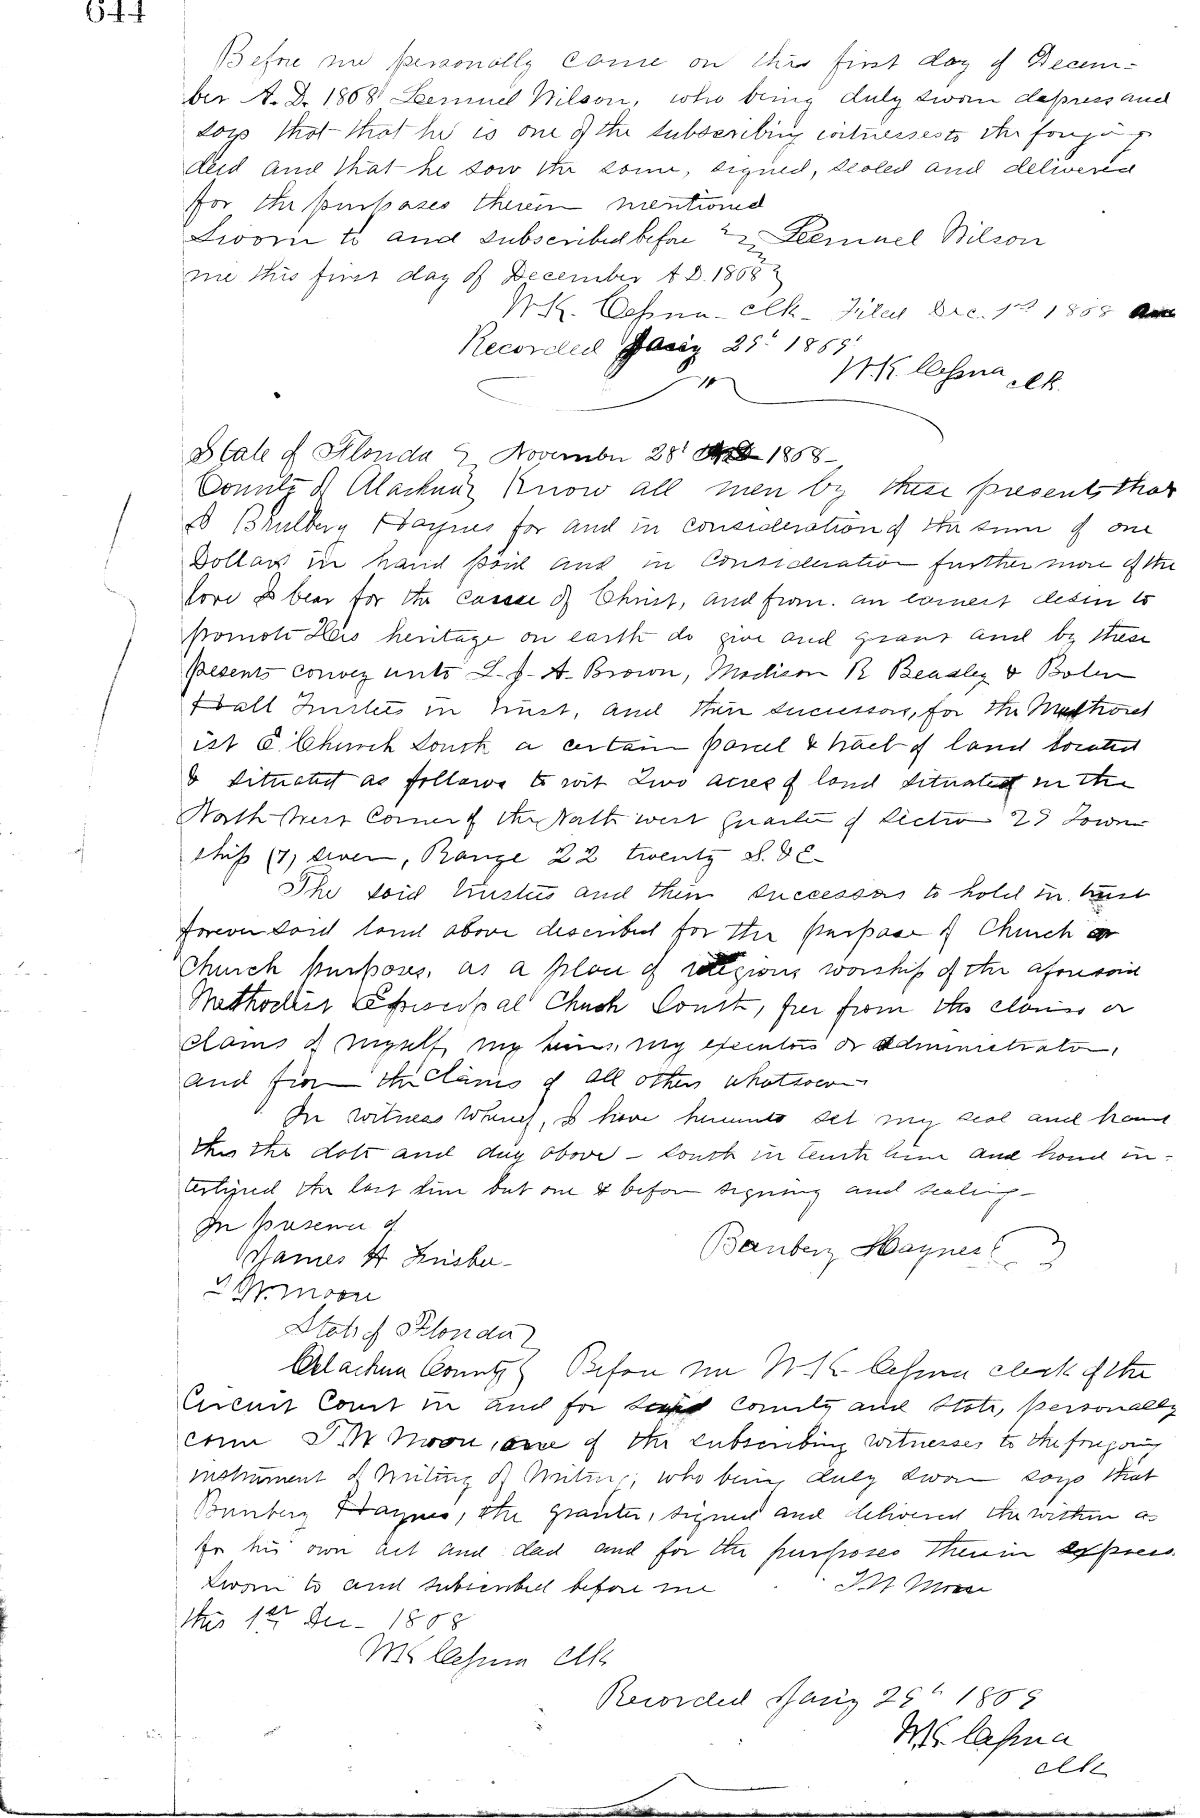 644
Before me personally came on this first day of Decem-
ber A. D. 1868 Lemuel Wilson, who being duly sworn depress and
says that that he is one of the subscribing witnesses to the
deed and that he saw the same, signed, sealed and delivered
for the purposes therein mentioned
Sworn to and subscribed before Lemuel Wilson
me this first day of December A D. 1868
W. K. Cessna clk - Filed Dec. 1st 1868
Recorded Jany 29t 1869
W. K. Cessna clk.
State of Florida November 28t AD 1868 -
County of Alachua Know all men by these presents that
I Haynes for and in consideration of the sum of one
Dollars in hand paid and in consideration further more of the
love I bear for the cause of Christ, and from an earnest desire to
promote His heritage on earth do give and grant and by these
presents convey unto L. J. A. Brown, Madison R Beasley & Bolen
Hall Trustees in trust, and their successors, for the Method
ist E. Church South a certain parcel & tract of land located
& situated as follows to wit Two acres of land situated in the
North West Corner of the North west quarter of Section 29 Town-
ship (7) seven, Range 22 twenty S. & E -
The said trustees and their successors to hold in trust
forever said land above described for the purpose of Church or
Church purposes, as a place of religious worship of the aforesaid
Methodist Episcopal Chuch South, free from the claims or
claims of myself, my heirs, my executors or administrators,
and from the Claims of all others whatsoever
In witness whereof, I have hereunto set my seal and hand
this the date and day above - South in tenth line and hand in-
the last line but one & before signing and sealing -
In presence of
James H Frisbee Haynes
T W. Moon
State of Florida
Alachua County Before me W. K. Cessna clerk of the
Circuit Court in and for said county and state, personally
came T. W Moon, one of the subscribing witnesses to the foregoing
instrument of Writing of Writing, who being duly sworn says that
Haynes, the granter, signed and delivered the within as
for his own act and deed and for the purposes therein express
Sworn to and subscribed before me T. W Moon
this 1st Dec - 1868
W K Cessna Clk
Recorded Jany 29th 1869
W. K. Cessna
clk